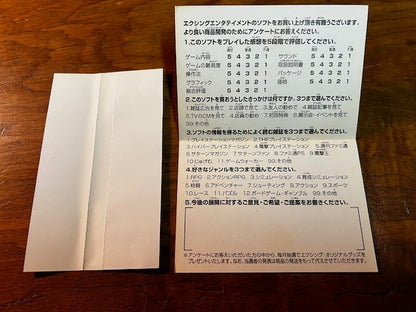 エクシングエンタテイメントのソフトをお買い上げ頂き有難うございます。
より良い商品開発のためにアンケートにお答えください。
1.このソフトをプレイした感想を5段階で評価してください。
ゲーム内容 5 4 3 2 1 サウンド 5 4 3 2 1
ゲームの難易度 5 4 3 2 1 取扱説明書 5 4 3 2 1
操作法 5 4 3 2 1 パッケージ 5 4 3 2 1
グラフィック 5 4 3 2 1 価格 5 4 3 2 1
総合評価 5 4 3 2 1
2.このソフトを買おうとしたきっかけは何ですか、3つまで選んでください。
1.雑誌広告を見て 2.店頭で見て 3.友人の勧めで 4.雑誌記事を見て
5.TVCMを見て 6.店頭の勧め 7.初回特典 8.展示会・イベントを見て
99.その他
3.ソフトの情報を得るためによく読む雑誌を3つまで選んでください。
1.プレイステーションマガジン 2.THEプレイステーション
3.ハイパープレイステーション 4.電撃プレイステーション 5.週刊ファミ通
6.サターンマガジン 7.サターンファン 8.ファミ通PS 9.電撃王
10.じゅげむ 11.ゲームウォーカー 99.その他
4.好きなジャンルを3つまで選んでください。
1.RPG 2.アクションRPG 3.シミュレーション 4.育成シミュレーション
5.格闘 6.アドベンチャー 7.シューティング 8.アクション 9.スポーツ
10.レース 11.パズル 12.ボードゲーム・ギャンブル 99.その他
5.今後の展開に対するご意見・ご希望・ご提案をお書きください。
※アンケートにお答えいただいた方の中から、毎月抽選でエクシング・オリジナルグッズを
プレゼントいたします。なお、当選者の発表は商品の発送をもって代えさせていただきます。